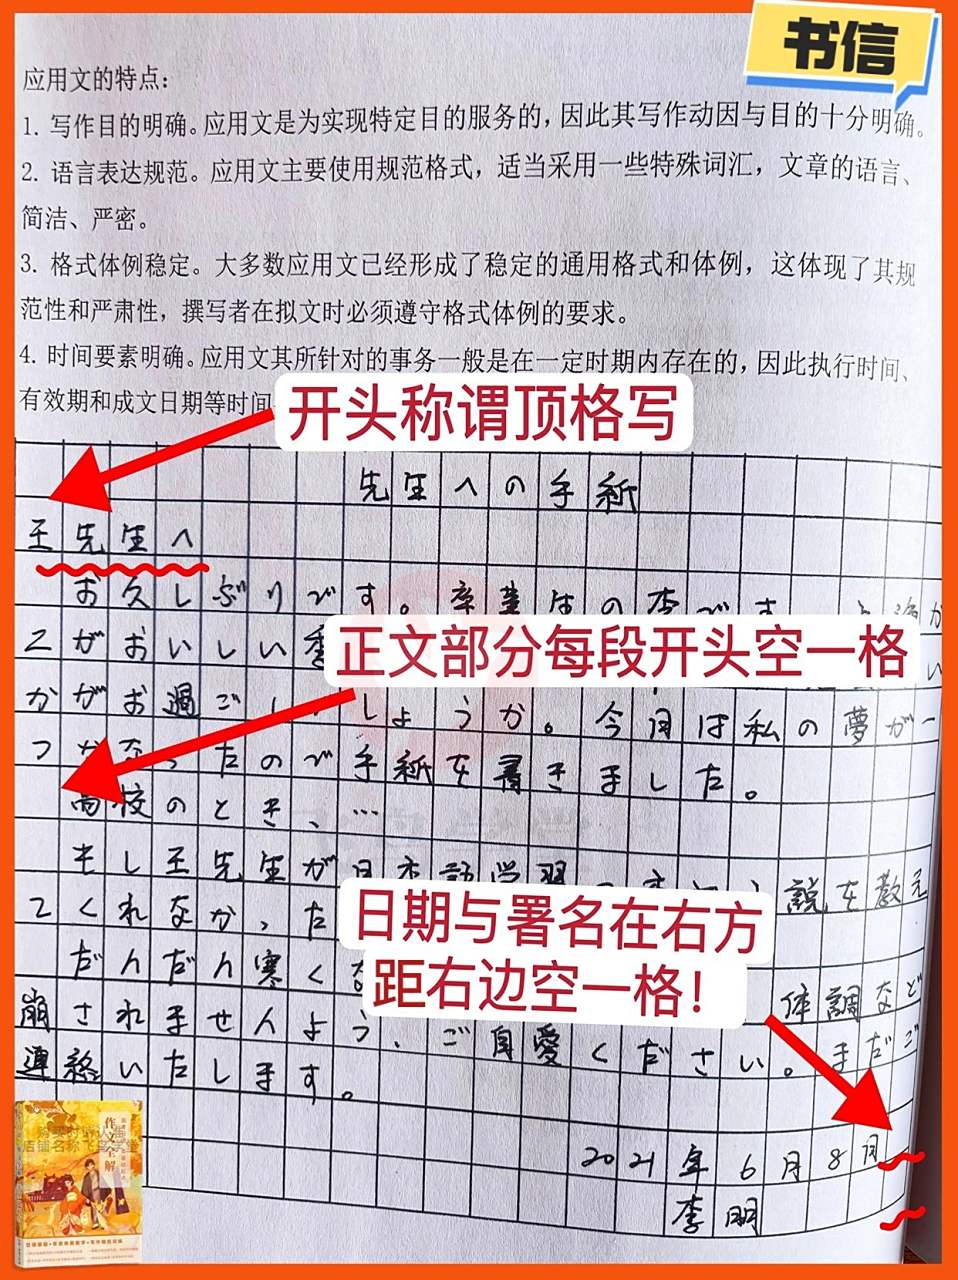 书信
应用文的特点：
1. 写作目的明确。应用文是为实现特定目的服务的，因此其写作动因与目的十分明确。
2. 语言表达规范。应用文主要使用规范格式，适当采用一些特殊词汇，文章的语言、
简洁、严密。
3. 格式体例稳定。大多数应用文已经形成了稳定的通用格式和体例，这体现了其规
范性和严肃性，撰写者在拟文时必须遵守格式体例的要求。
4. 时间要素明确。应用文其所针对的事务一般是在一定时期内存在的，因此执行时间、
有效期和成文日期等时间
开头称谓顶格写
先生への手紙
王先生へ
お久しぶりです。卒業生の李です。
こがおいしい季
正文部分每段开头空一格
かがお過ごし しょうか。今回は私の夢が一
つかなったので手紙を書きました。
高校のとき、…
もし王先生が日本語学習 説を教え
てくれなかった
日期与署名在右方
距右边空一格！
だんだん寒くな 体調など
崩されませんよう、ご自愛ください。まだご
連絡いたします。
2021年6月8日
李明
作文全解